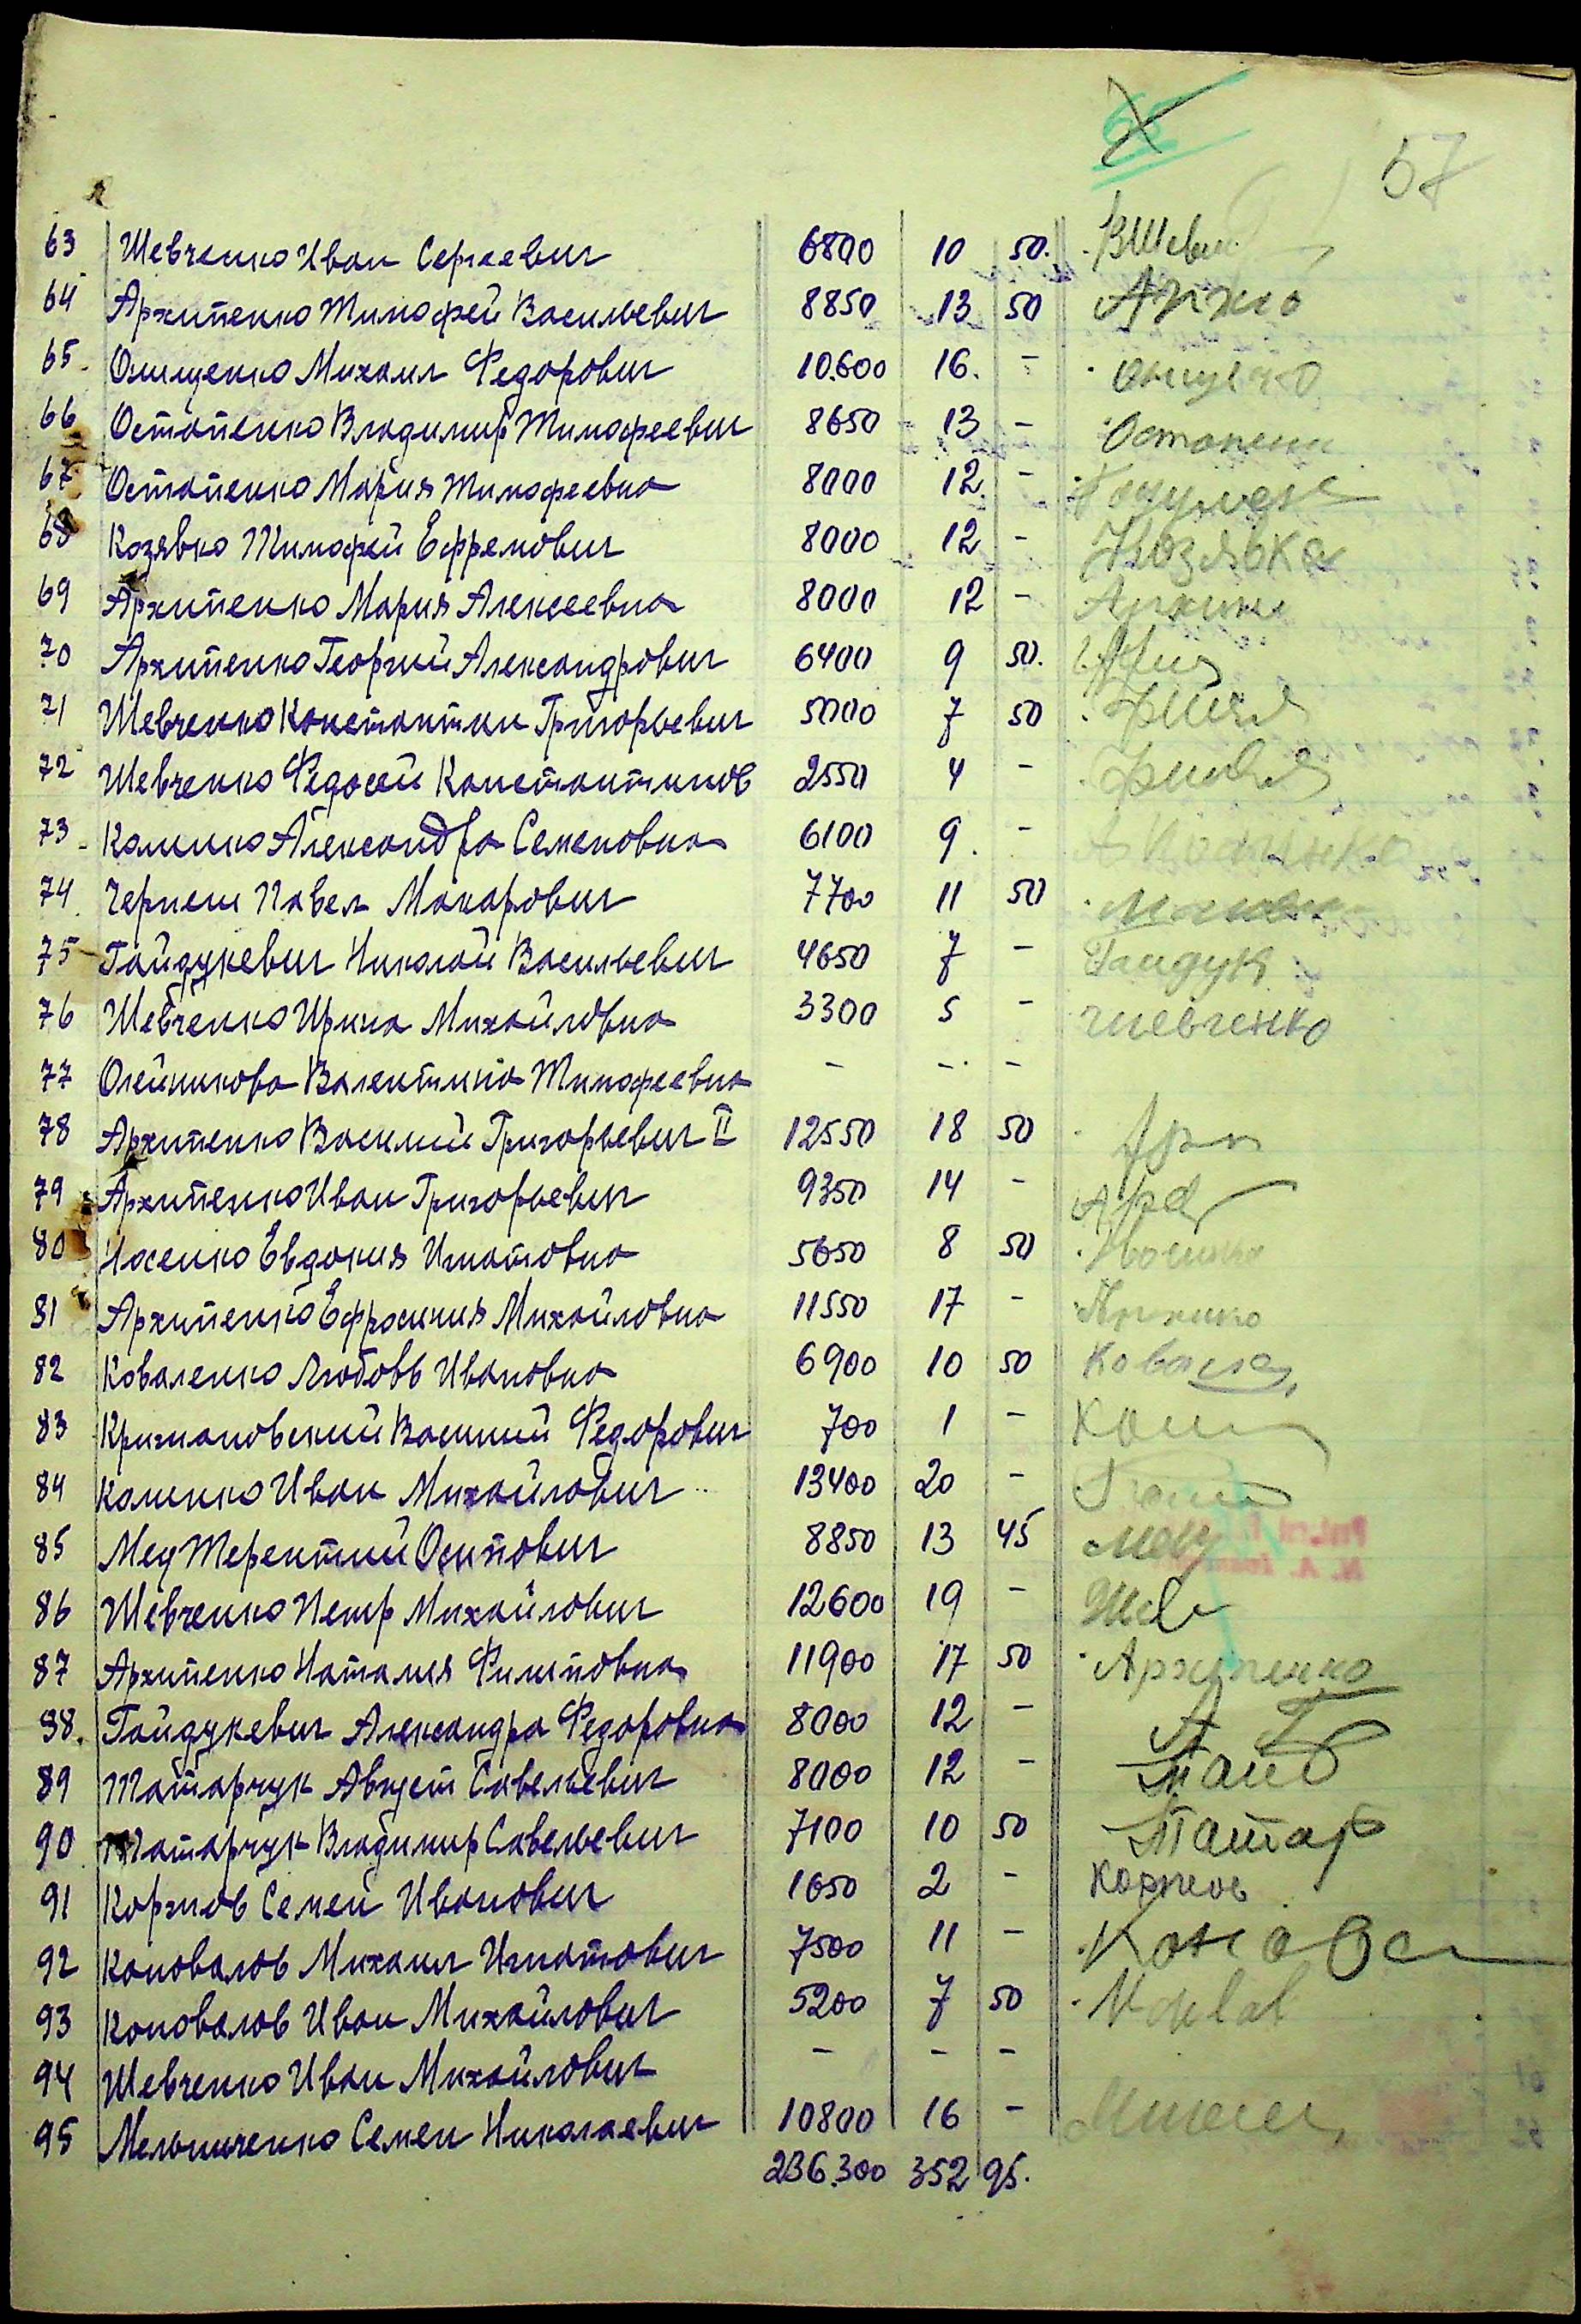 57
63 Шевченко Иван Сергеевич 6800 10 50. ВШевч
64 Архипенко Тимофей Васильевич 8850 13 50
65. Онищенко Михаил Федорович 10.600 16. –
66 Остапенко Владимир Тимофеевич 8650 13 – Остапенк
67 Остапенко Мария Тимофеевна 8000 12 –
68 Козявко Тимофей Ефремович 8000 12 – Козявка
69 Архипенко Мария Алексеевна 8000 12 –
70 Архипенко Георгий Александрович 6400 9 50.
71 Шевченко Константин Григорьевич 5000 7 50
72 Шевченко Федосей Константинов 2550 4 –
73 Калинко Александра Семеновна 6100 9. –
74 Чернеш Павел Макарович 7700 11 50
75 Гайдукевич Николай Васильевич 4650 7 – Гайдук
76 Шевченко Ирина Михайловна 3300 5 – Шевченко
77 Олейникова Валентина Тимофеевна – – –
78 Архипенко Василий Григорьевич II 12550 18 50 Арх
79 Архипенко Иван Григорьевич 9350 14 –
80 Носенко Евдокия Игнатовна 5650 8 50
81 Архипенко Ефросиния Михайловна 11550 17 –
82 Коваленко Любовь Ивановна 6900 10 50 Ковале
83 Крижановский Василий Федорович 700 1 –
84 Каленко Иван Михайлович 13400 20 –
85 Мед Терентий Осипович 8850 13 45 Мед
86 Шевченко Петр Михайлович 12600 19 – Шев
87 Архипенко Наталия Филиповна 11900 17 50 Архипенко
88. Гайдукевич Александра Федоровна 8000 12 – А Г
89 Татарчук Август Савельевич 8000 12 –
90 Татарчук Владимир Савельевич 7100 10 50 Татар
91 Коржов Семен Иванович 1650 2 – Коржов
92 Коновалов Михаил Игнатович 7500 11 – Конова
93 Коновалов Иван Михайлович 5200 7 50
94 Шевченко Иван Михайлович – – –
95 Мельниченко Семен Николаевич 10800 16 –
236.300 352 95.